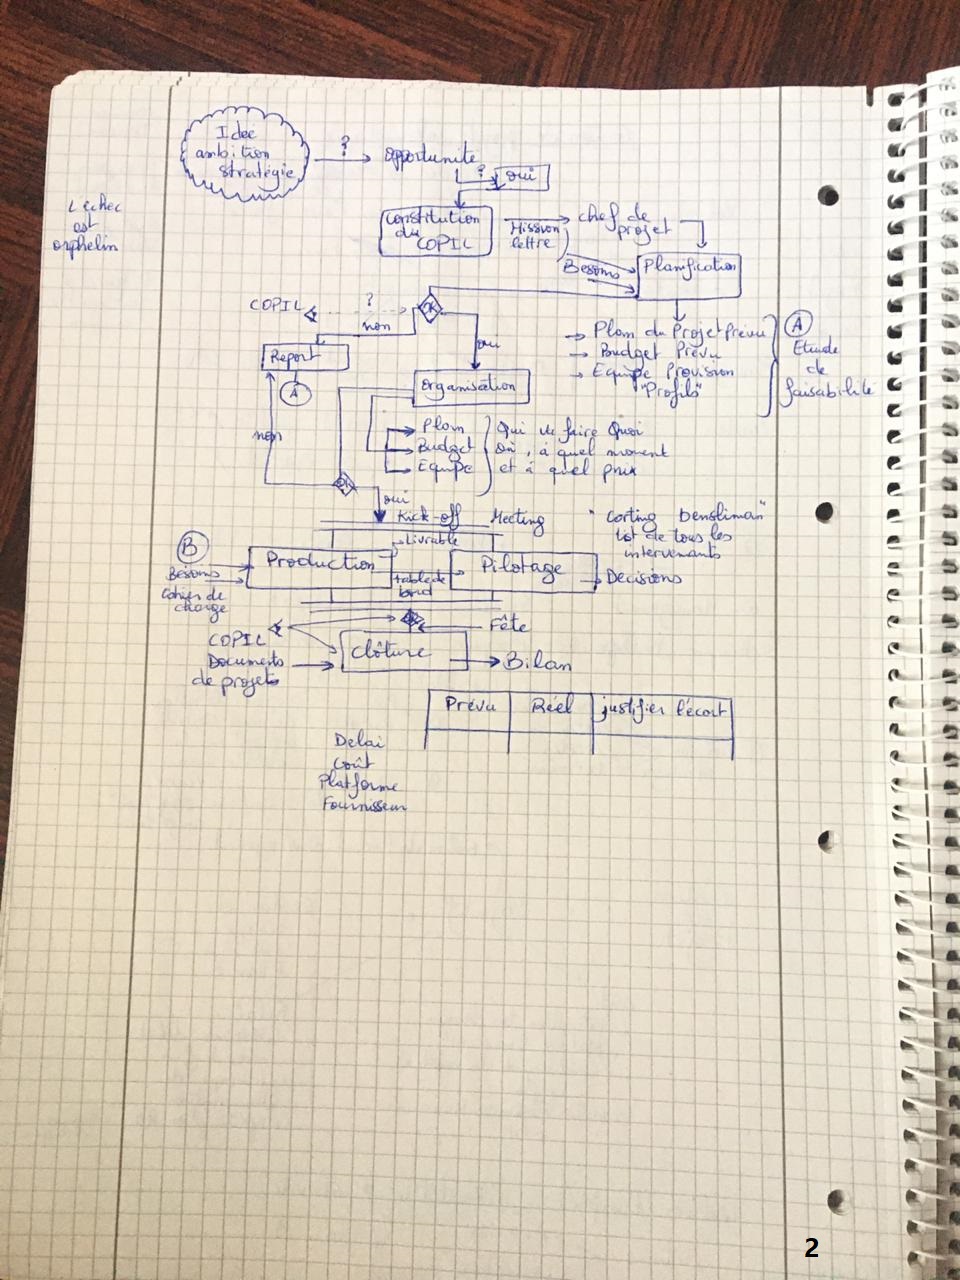 Idée
ambition
stratégie
?
opportunité
?
oui
L'échec
est
orphelin
Constitution
du
COPIL
Mission
lettre
chef de
projet
Besoins
Planification
COPIL
?
OK
non
oui
Report
A
→ Plan du Projet prévu
→ Budget Prévu
→ Equipe Provision
"Profils"
A
Etude
de
faisabilité
Organisation
non
Plan
Budget
Equipe
Qui va faire Quoi
Où, à quel moment
et à quel prix
OK
oui
Kick-off Meeting
lst de tous les
intervenants
B
Besoins
Cahier de
charge
Production
Livrable
table de
bord
Pilotage
Decisions
COPIL
Documents
de projets
Fête
Clôture
Bilan
Prévu Réel justifier l'écart
Delai
Coût
Platforme
Fournisseur
2